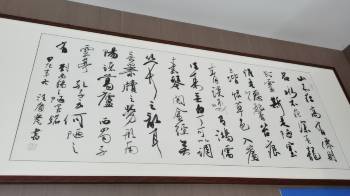 山不在高有仙則
名水不在深有龍
則靈斯是陋室
惟吾德馨苔痕
上階綠草色入簾
青談笑有鴻儒
往來無白丁可以調
素琴閱金經無
絲竹之亂耳
無案牘之勞形南
陽諸葛廬西蜀子
雲亭孔子云何陋之
有
劉禹錫陋室銘
書